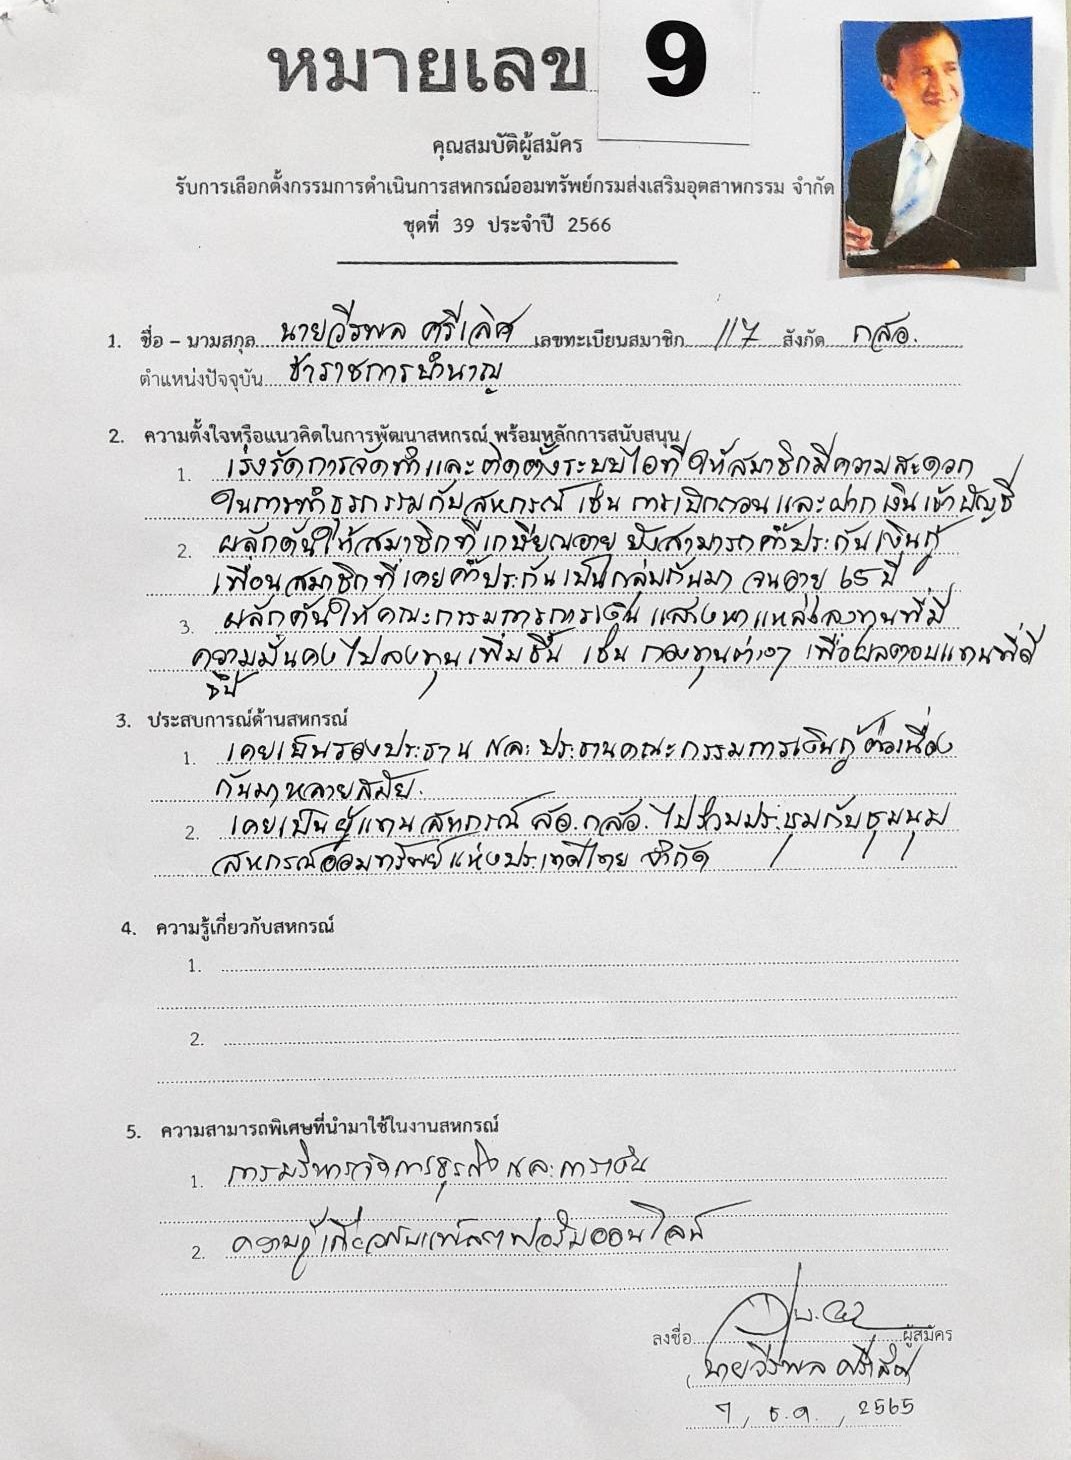 หมายเลข 9
คุณสมบัติผู้สมัคร
รับการเลือกตั้งกรรมการดำเนินการสหกรณ์ออมทรัพย์กรมส่งเสริมอุตสาหกรรม จำกัด
ชุดที่ 39 ประจำปี 2566
1. ชื่อ – นามสกุล นายวีรพล ศรีเลิศ เลขทะเบียนสมาชิก 117 สังกัด กสอ.
ตำแหน่งปัจจุบัน ข้าราชการบำนาญ
2. ความตั้งใจหรือแนวคิดในการพัฒนาสหกรณ์ พร้อมหลักการสนับสนุน
1. เร่งรัดการจัดทำและติดตั้งระบบไอที ให้สมาชิกมีความสะดวก
ในการทำธุรกรรมกับสหกรณ์ เช่น การเบิกถอนและฝากเงินเข้าบัญชี
2. ผลักดันให้สมาชิกที่เกษียณอายุ ยังสามารถค้ำประกันเงินกู้
เพื่อนสมาชิกที่เคยค้ำประกันเป็นกลุ่มกันมา จนอายุ 65 ปี
3. ผลักดันให้คณะกรรมการการเงิน แสวงหาแหล่งลงทุนที่มี
ความมั่นคงไปลงทุนเพิ่มขึ้น เช่น กองทุนต่างๆ เพื่อผลตอบแทนที่ดี
ขึ้น
3. ประสบการณ์ด้านสหกรณ์
1. เคยเป็นรองประธาน และประธานคณะกรรมการเงินกู้ต่อเนื่อง
กันมาหลายสมัย.
2. เคยเป็นผู้แทนสหกรณ์ สอ.กสอ. ไปร่วมประชุมกับชุมนุม
สหกรณ์ออมทรัพย์แห่งประเทศไทย จำกัด
4. ความรู้เกี่ยวกับสหกรณ์
1.
2.
5. ความสามารถพิเศษที่นำมาใช้ในงานสหกรณ์
1. การบริหารจัดการธุรกิจและการเงิน
2. ความรู้เกี่ยวกับแพลตฟอร์มออนไลน์
ลงชื่อ ผู้สมัคร
(นายวีรพล ศรีเลิศ)
7 / ธ.ค. / 2565